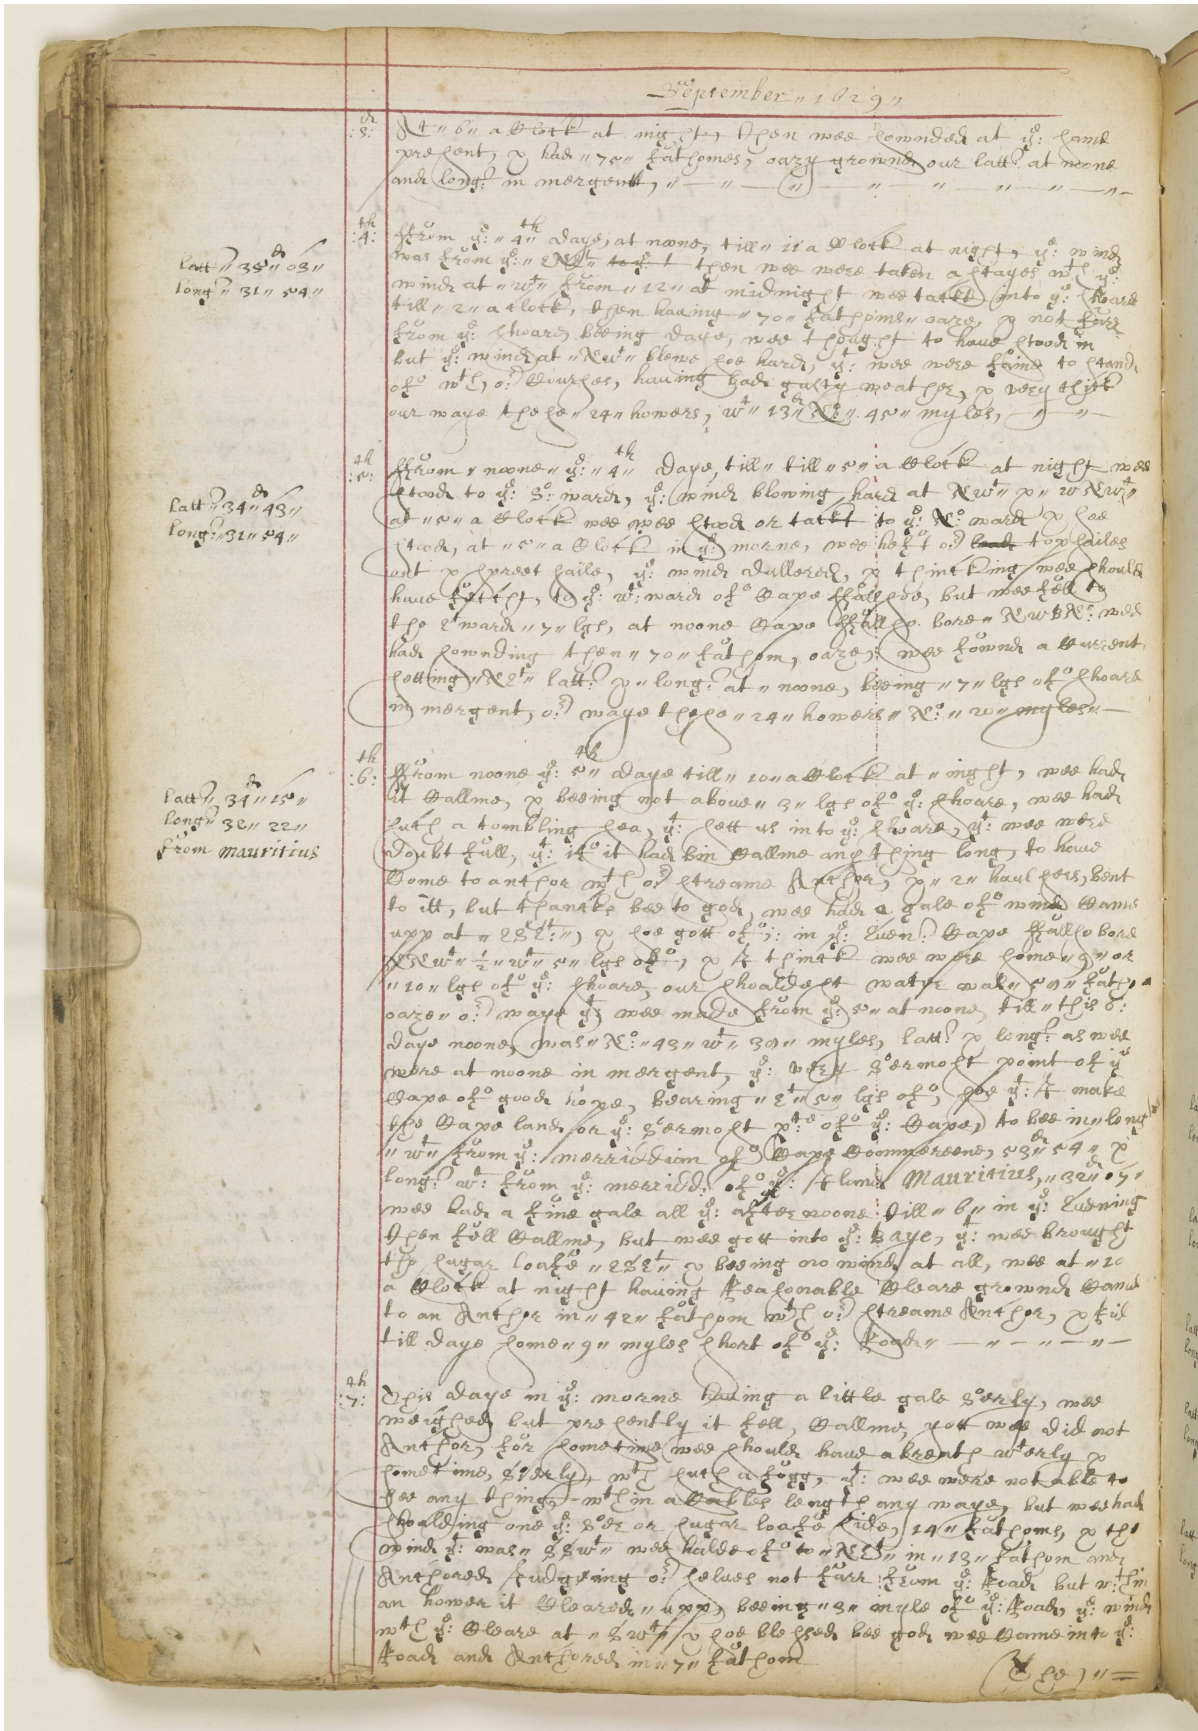 September " 1629 "
:3: At " 6 " a Clock at night, then wee sownded at ye: same
present, & had " 75 " fathomes, oazy grownd our latt: at noone
and long: in mergent, "
th
:4: ffrom ye: " 4th " daye, at noone, till " 12 a Clock at night, ye: wind
was from ye: " then wee were taken a stayes wth ye:
Latt " 35d " 03 "
Long: " 31 " 54 "
wind at " Wt " from " 12 " at midnight wee tackt into ye: shoare
till " 2 " a clock, then having " 70 " fathoms " oaze, & not farr
from ye: shoare, beeing daye, wee thought to have stood in
but ye: wind at " NWt " blewe soe hard, yt: wee were faine to stand
of wth or: Courses, having had gusty weather, & very thick
our waye these " 24 " howers, Wt " 13d " No: " 45 " myles,
th
:5: ffrom " noone " ye: " 4th " Daye, till " till " 5 " a Clock at night wee
stood to ye: So: ward, ye: wind blowing hard at NWt " & " WNWt "
Latt " 34d " 43 "
Long: " 31 " 54 "
at " 5 " a Clock wee wee stood or tackt to ye: No: ward & soe
stood, at " 5 " a Clock in ye: morne, wee heft or: topsailes
out & spreet saile, ye: wind dullered, & thincking wee should
have fetcht, to ye: Wt: ward of Cape ffallsoe, but wee fell to
the Et ward " 7 " lgs, at noone Cape ffallso bore " NWBNo: wee
had sownding then " 70 " fathom, oaze, wee fownd a Current
setting " NEt " latt: & " long: at " noone, beeing " 7 " lgs of shoare
in mergent, or: waye these " 24 " howers " No: " 20 " myles "
th
:6: ffrom noone ye: 5th " daye till " 10 " a Clock at " inght, wee had
Latt " 34d " 15 "
Long: " 32 " 22 "
from Mauritius
it Callme, & beeing not above " 3 " lgs of ye: shoare, wee had
such a tombling sea, yt: sett us into ye: shoare, yt: wee were
doubtfull, yt: if it had bin Callme any thing long, to have
Come to anchor wth or: streame Anchor, & " 2 " haulsers, bent
to itt, but thancks bee to god, wee had a gale of wind Came
upp at " ESEt: ", & soe gott of;: in ye: Even: Cape ffallso bore
NNWt " 1/2 " Wt " 5 " lgs of, & I thinck wee were some " 9 " or
" 10 " lgs of ye: shoare, our shoaldest water was " 50 " fatho
oaze " or: waye yt wee made from ye: 5 " at noone, till " this 6:
daye noone, was " No: " 43 " Wt " 30 " myles, latt: & long: as wee
were at noone in mergent, ye: very So ermost point of ye
Cape of good hope, bearing " Et " 5 " lgs of, soe yt: I make
the Cape land or ye: So ermost pte of ye: Cape, to bee in " long:
" Wt from ye: merriddian of Cape Commoreene, 53d " 54 " &
long: Wt: from ye: merridd: of ye: Iland Mauritius, " 32d " 07 "
wee had a fine gale all ye: afternoone till " 6 " in ye: Evening
then fell Callme, but wee gott into ye: Baye, yt: wee brought
the sugar loafe " ESEt " & beeing no wind at all, wee at " 10
a Clock at night having Reasonable Cleare grownd Came
to an Anchor in " 42 " fathom wth or: streame Anchor, & Rid
till daye some " 9 " myles short of ye: Road "
th
:7: This daye in ye: morne having a little gale So erly, wee
weighed but presently it fell, Callme, yett wee did not
Anchor, for sometime wee should have abreath Wt erly &
sometime, So erly, wth such a fogg, yt: wee were not able to
see any thing, wth in a Cables length any waye, but wee had
shoalding one ye: So er or sugar loafe side, 14 " fathoms, & the
wind yt: was " SSWt " wee halde of to " NEt " in " 13 " fathom and
Anchored Judgeing or: selves not farr from ye: Road but wthin
an hower it Cleared " upp, beeing " 3 " myle of ye: Road, ye: wind
wth ye: Cleare at " SWt " & soe blessed bee god wee Came into ye:
Road and Anchored in " 7 " fathom
(The) " =